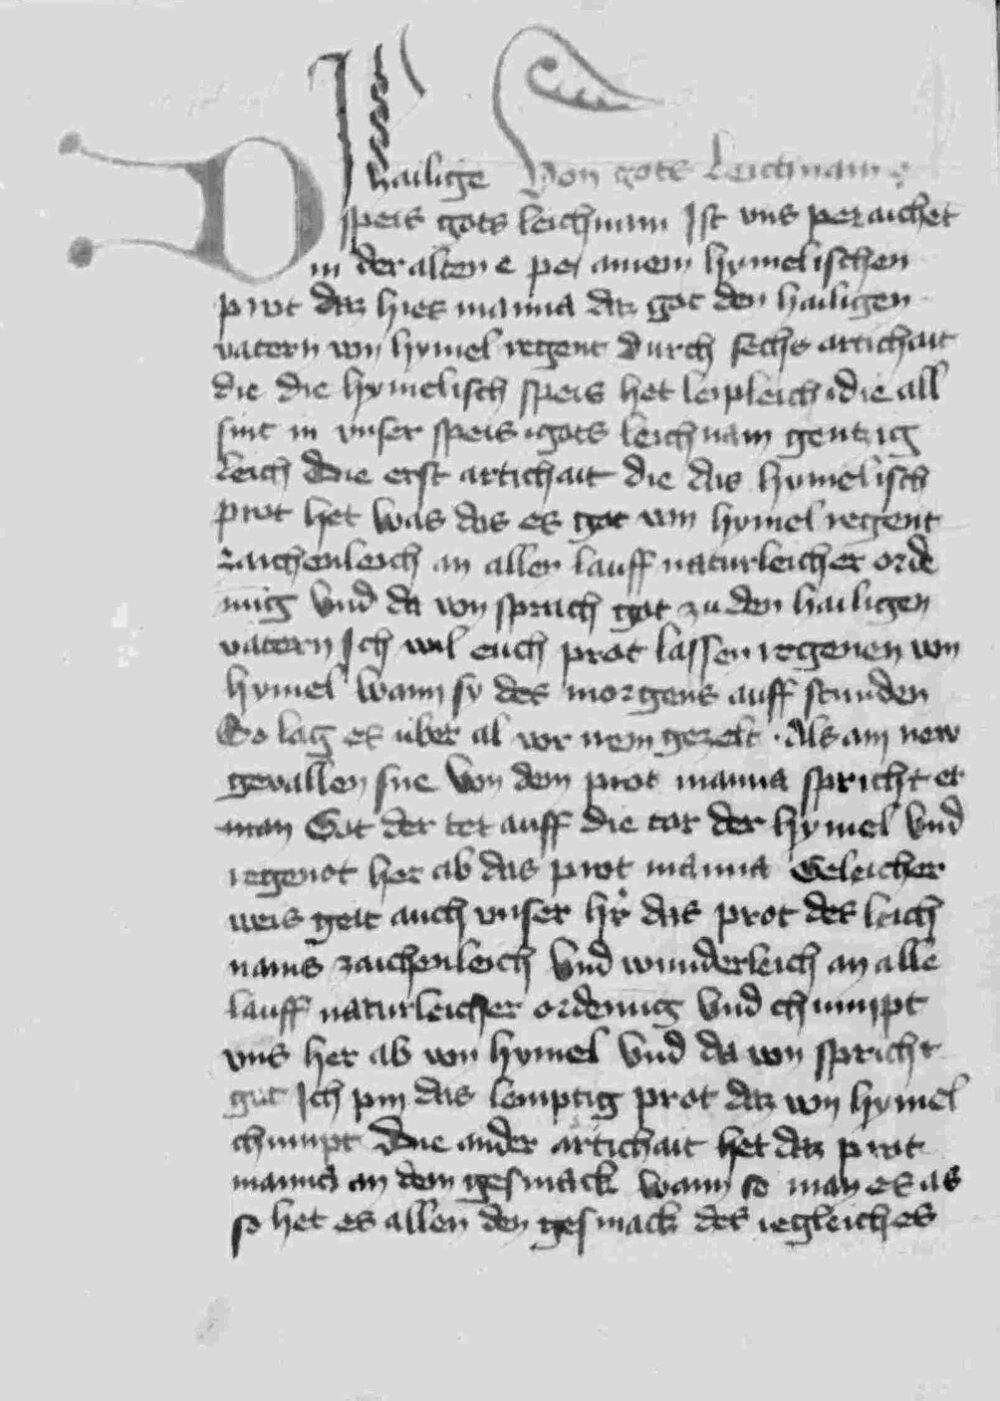 DIE hailige Von gots Leichnam
speis gots leichnam Ist vns peraichet
in der alten e pei ainem hymelischen
prot daz hies manna daz got den hailigen
vatern von hymel regent durch sechs artichait
die die hymelisch speis het leipleich die all
sint in vnser speis gots leichnam gentzig
leich Die erst artichait die das hymelisch
prot het was das es got von hymel regent
zaichenleich an allen lauff naturleicher orde
nug Vnd da von sprach got zu den hailigen
vatern Ich wil euch prot lassen regenen von
hymel wann sy des morgens auff stunden
So lag es uber al vor irem gezelt Als ain new
gevallen sne Von dem prot manna spricht et
man Got der tet auff die tor der hymel Vnd
regenot her ab das prot manna Geleicher
weis geit auch vnser hr das prot des leich
nams zaichenleich Vnd wunderleich an alle
lauff naturleicher ordenug Vnd chumpt
vns her ab von hymel Vnd da von spricht
got Ich pin das lemptig prot daz von hymel
chumpt Die ander artichait het daz prot
manna an dem gesmack wann so man es as
so het es allen den gesmack des iegleiches